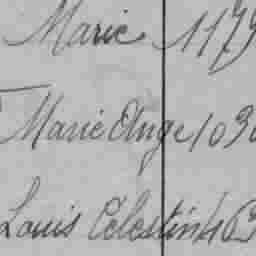 Marie 1179
Marie Ange 1030
Louis Célestin 463